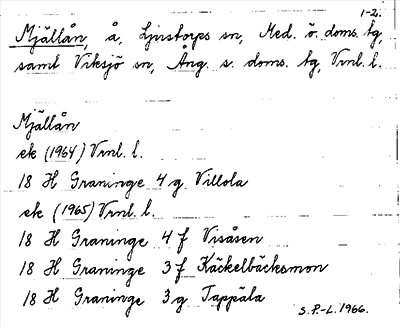 1-2.
Mjällån, å, Ljustorps sn, Med. ö. doms. tg,
samt Viksjö sn, Ång. s. doms. tg, Vrnl. l.
Mjällån
ek (1964) Vrnl. l.
18 H Graninge 4 g Villola
ek (1965) Vrnl. l.
18 H Graninge 4 f Visåsen
18 H Graninge 3 f Käckelbäcksmon
18 H Graninge 3 g Tappäla
S.P.-L. 1966.